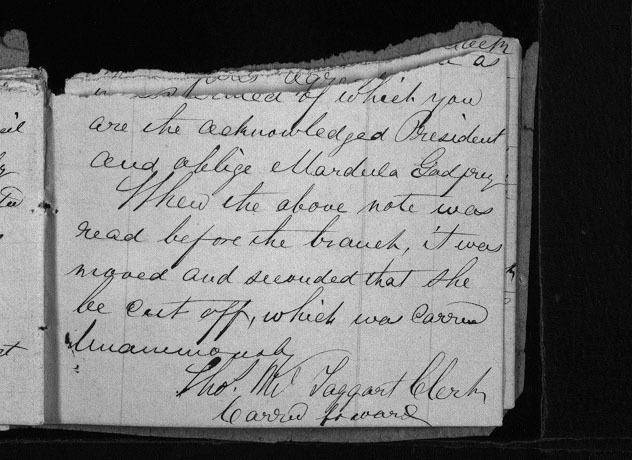 as
of which you
are the acknowledged President
and oblige Mardula Godfrey
When the above note was
read before the branch, it was
moved and seconded that she
be cut off, which was carred
Unanimously
Thos. Mc Taggart Clerk
Carred forward